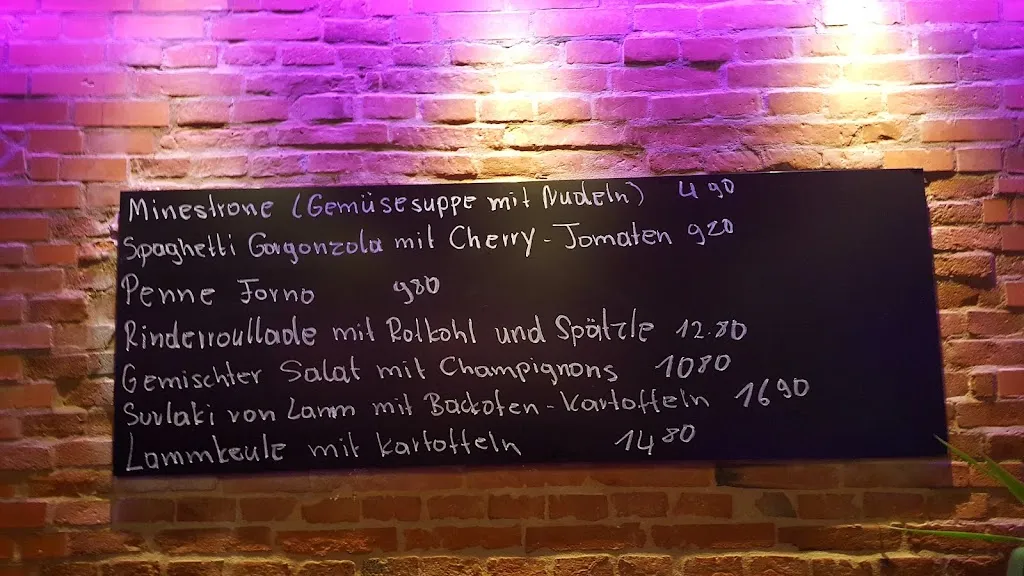 Minestrone (Gemüsesuppe mit Nudeln) 4 90
Spaghetti Gorgonzola mit Cherry-Tomaten 920
Penne Forno 980
Rinderroullade mit Rotkohl und Spätzle 12.80
Gemischter Salat mit Champignons 1080
Suvlaki von Lamm mit Backofen-Kartoffeln 1690
Lammkeule mit Kartoffeln 14 80